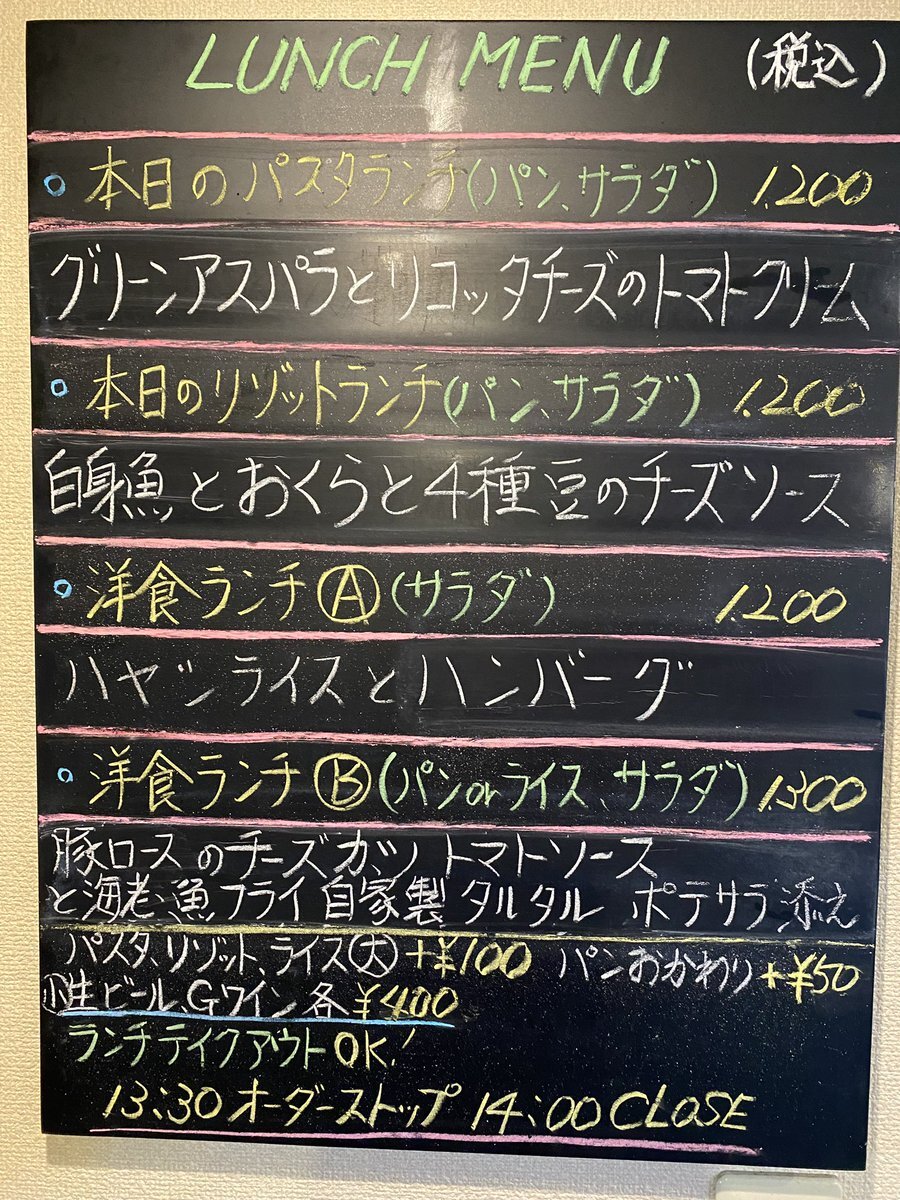 LUNCH MENU (税込)
○本日のパスタランチ(パン、サラダ) 1.200
グリーンアスパラとリコッタチーズのトマトクリーム
○本日のリゾットランチ(パン、サラダ) 1.200
白身魚とおくらと4種豆のチーズソース
○洋食ランチⒶ(サラダ) 1.200
ハヤシライスとハンバーグ
○洋食ランチⒷ(パンorライス、サラダ) 1300
豚ロースのチーズカツトマトソース
と海老、魚フライ自家製タルタル ポテサラ添え
パスタ、リゾット、ライス㊅+¥100 パンおかわり+¥50
小生ビール、Gワイン各¥400
ランチテイクアウトOK!
13:30オーダーストップ 14:00CLOSE